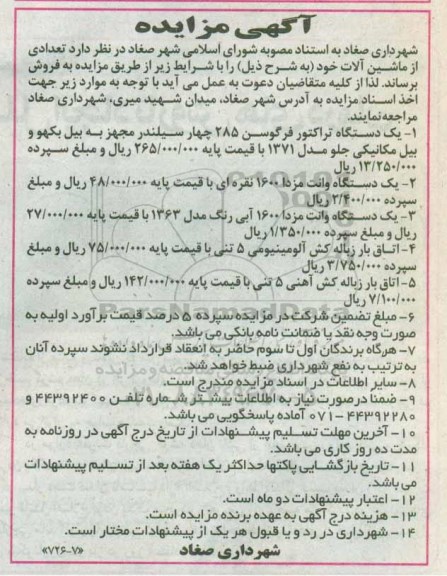 آگهی مزایده
شهرداری صغاد به استناد مصوبه شورای اسلامی شهر صغاد در نظر دارد تعدادی
از ماشین آلات خود (به شرح ذیل) را با شرایط زیر از طریق مزایده به فروش
برساند. لذا از کلیه متقاضیان دعوت به عمل می آید با توجه به موارد زیر جهت
اخذ اسناد مزایده به آدرس شهر صغاد، میدان شهید میری، شهرداری صغاد
مراجعه نمایند.
۱- یک دستگاه تراکتور فرگوسن ۲۸۵ چهار سیلندر مجهز به بیل بکهو و
بیل مکانیکی جلو مدل ۱۳۷۱ با قیمت پایه ۲۶۵/۰۰۰/۰۰۰ ریال و مبلغ سپرده
۱۳/۲۵۰/۰۰۰ ریال
۲- یک دستگاه وانت مزدا ۱۶۰۰ نقره ای با قیمت پایه ۴۸/۰۰۰/۰۰۰ ریال و مبلغ
سپرده ۲/۴۰۰/۰۰۰ ریال
۳- یک دستگاه وانت مزدا ۱۶۰۰ آبی رنگ مدل ۱۳۶۳ با قیمت پایه ۲۷/۰۰۰/۰۰۰
ریال و مبلغ سپرده ۱/۳۵۰/۰۰۰ ریال
۴- اتاق بار زباله کش آلومینیومی ۵ تنی با قیمت پایه ۷۵/۰۰۰/۰۰۰ ریال و مبلغ
سپرده ۳/۷۵۰/۰۰۰ ریال
۵- اتاق بار زباله کش آهنی ۵ تنی با قیمت پایه ۱۴۲/۰۰۰/۰۰۰ ریال و مبلغ سپرده
۷/۱۰۰/۰۰۰ ریال
۶- مبلغ تضمین شرکت در مزایده سپرده ۵ درصد قیمت برآورد اولیه به
صورت وجه نقد یا ضمانت نامه بانکی می باشد.
۷- هرگاه برندگان اول تا سوم حاضر به انعقاد قرارداد نشوند سپرده آنان
به ترتیب به نفع شهرداری ضبط خواهد شد.
۸- سایر اطلاعات در اسناد مزایده مندرج است.
۹- ضمنا در صورت نیاز به اطلاعات بیشتر شماره تلفن ۴۴۳۹۲۴۰۰ و
۴۴۳۹۲۲۸۰-۰۷۱ آماده پاسخگویی می باشد.
۱۰- آخرین مهلت تسلیم پیشنهادات از تاریخ درج آگهی در روزنامه به
مدت ده روز کاری می باشد.
۱۱- تاریخ بازگشایی پاکتها حداکثر یک هفته بعد از تسلیم پیشنهادات
می باشد.
۱۲- اعتبار پیشنهادات دو ماه است.
۱۳- هزینه درج آگهی به عهده برنده مزایده است.
۱۴- شهرداری در رد و یا قبول هر یک از پیشنهادات مختار است.
شهرداری صغاد «۷۲۶-۷»